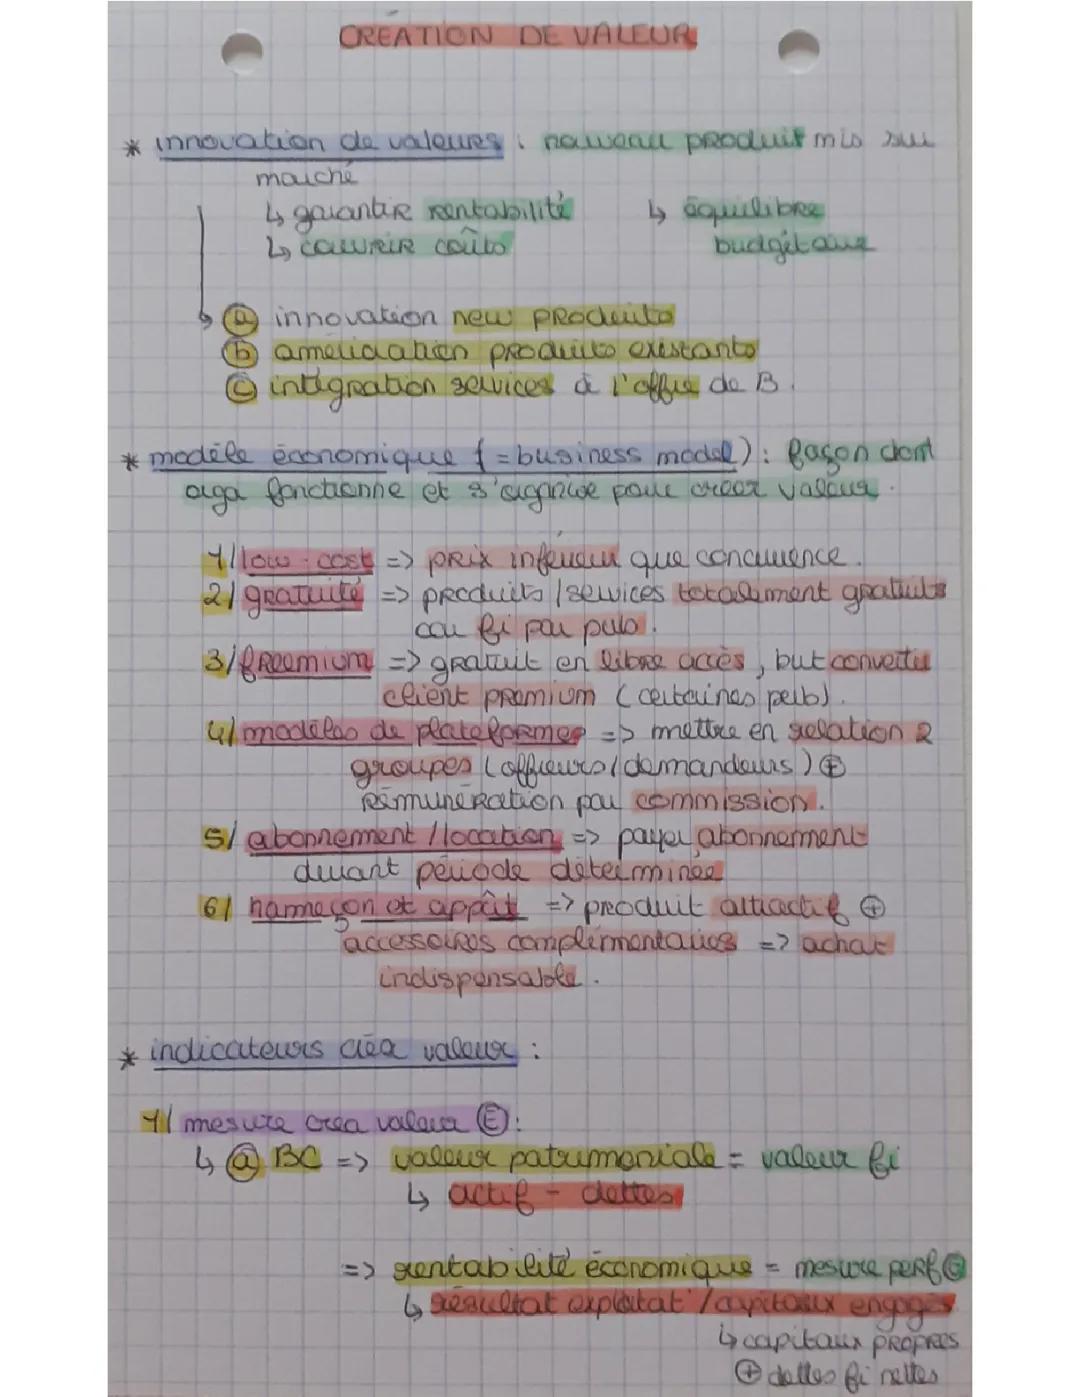 CRÉATION DE VALEUR
* innovation de valeurs : nouveau produit mis sur
marché
↳ garantir rentabilité ↳ équilibre
↳ couvrir coûts budgétaire
ⓐ innovation new produits
ⓑ amélioration produits existants
ⓒ intégration services à l'offre de B.
* modèle économique (= business model) : façon dont
orga fonctionne et s'organise pour créer valeur.
1/ low-cost => prix inférieur que concurrence.
2/ gratuité => produits / services totalement gratuits
ou fi par pub.
3/ freemium => gratuit en libre accès, but convertir
client premium (certaines pers).
4/ modèles de plateformes => mettre en relation 2
groupes (offreurs / demandeurs) ⊕
rémunération par commission.
5/ abonnement / location => payer abonnement
durant période déterminée
6/ hameçon et appât => produit attractif ⊕
accessoires complémentaires => achat
indispensable.
* indicateurs créa valeur :
1/ mesure crea valeur Ⓔ :
↳ ⓐ BC => valeur patrimoniale = valeur fi
↳ actif - dettes
=> rentabilité économique = mesure perf Ⓔ
↳ résultat exploitat° / capitaux engagés
↳ capitaux propres
⊕ dettes fi nettes